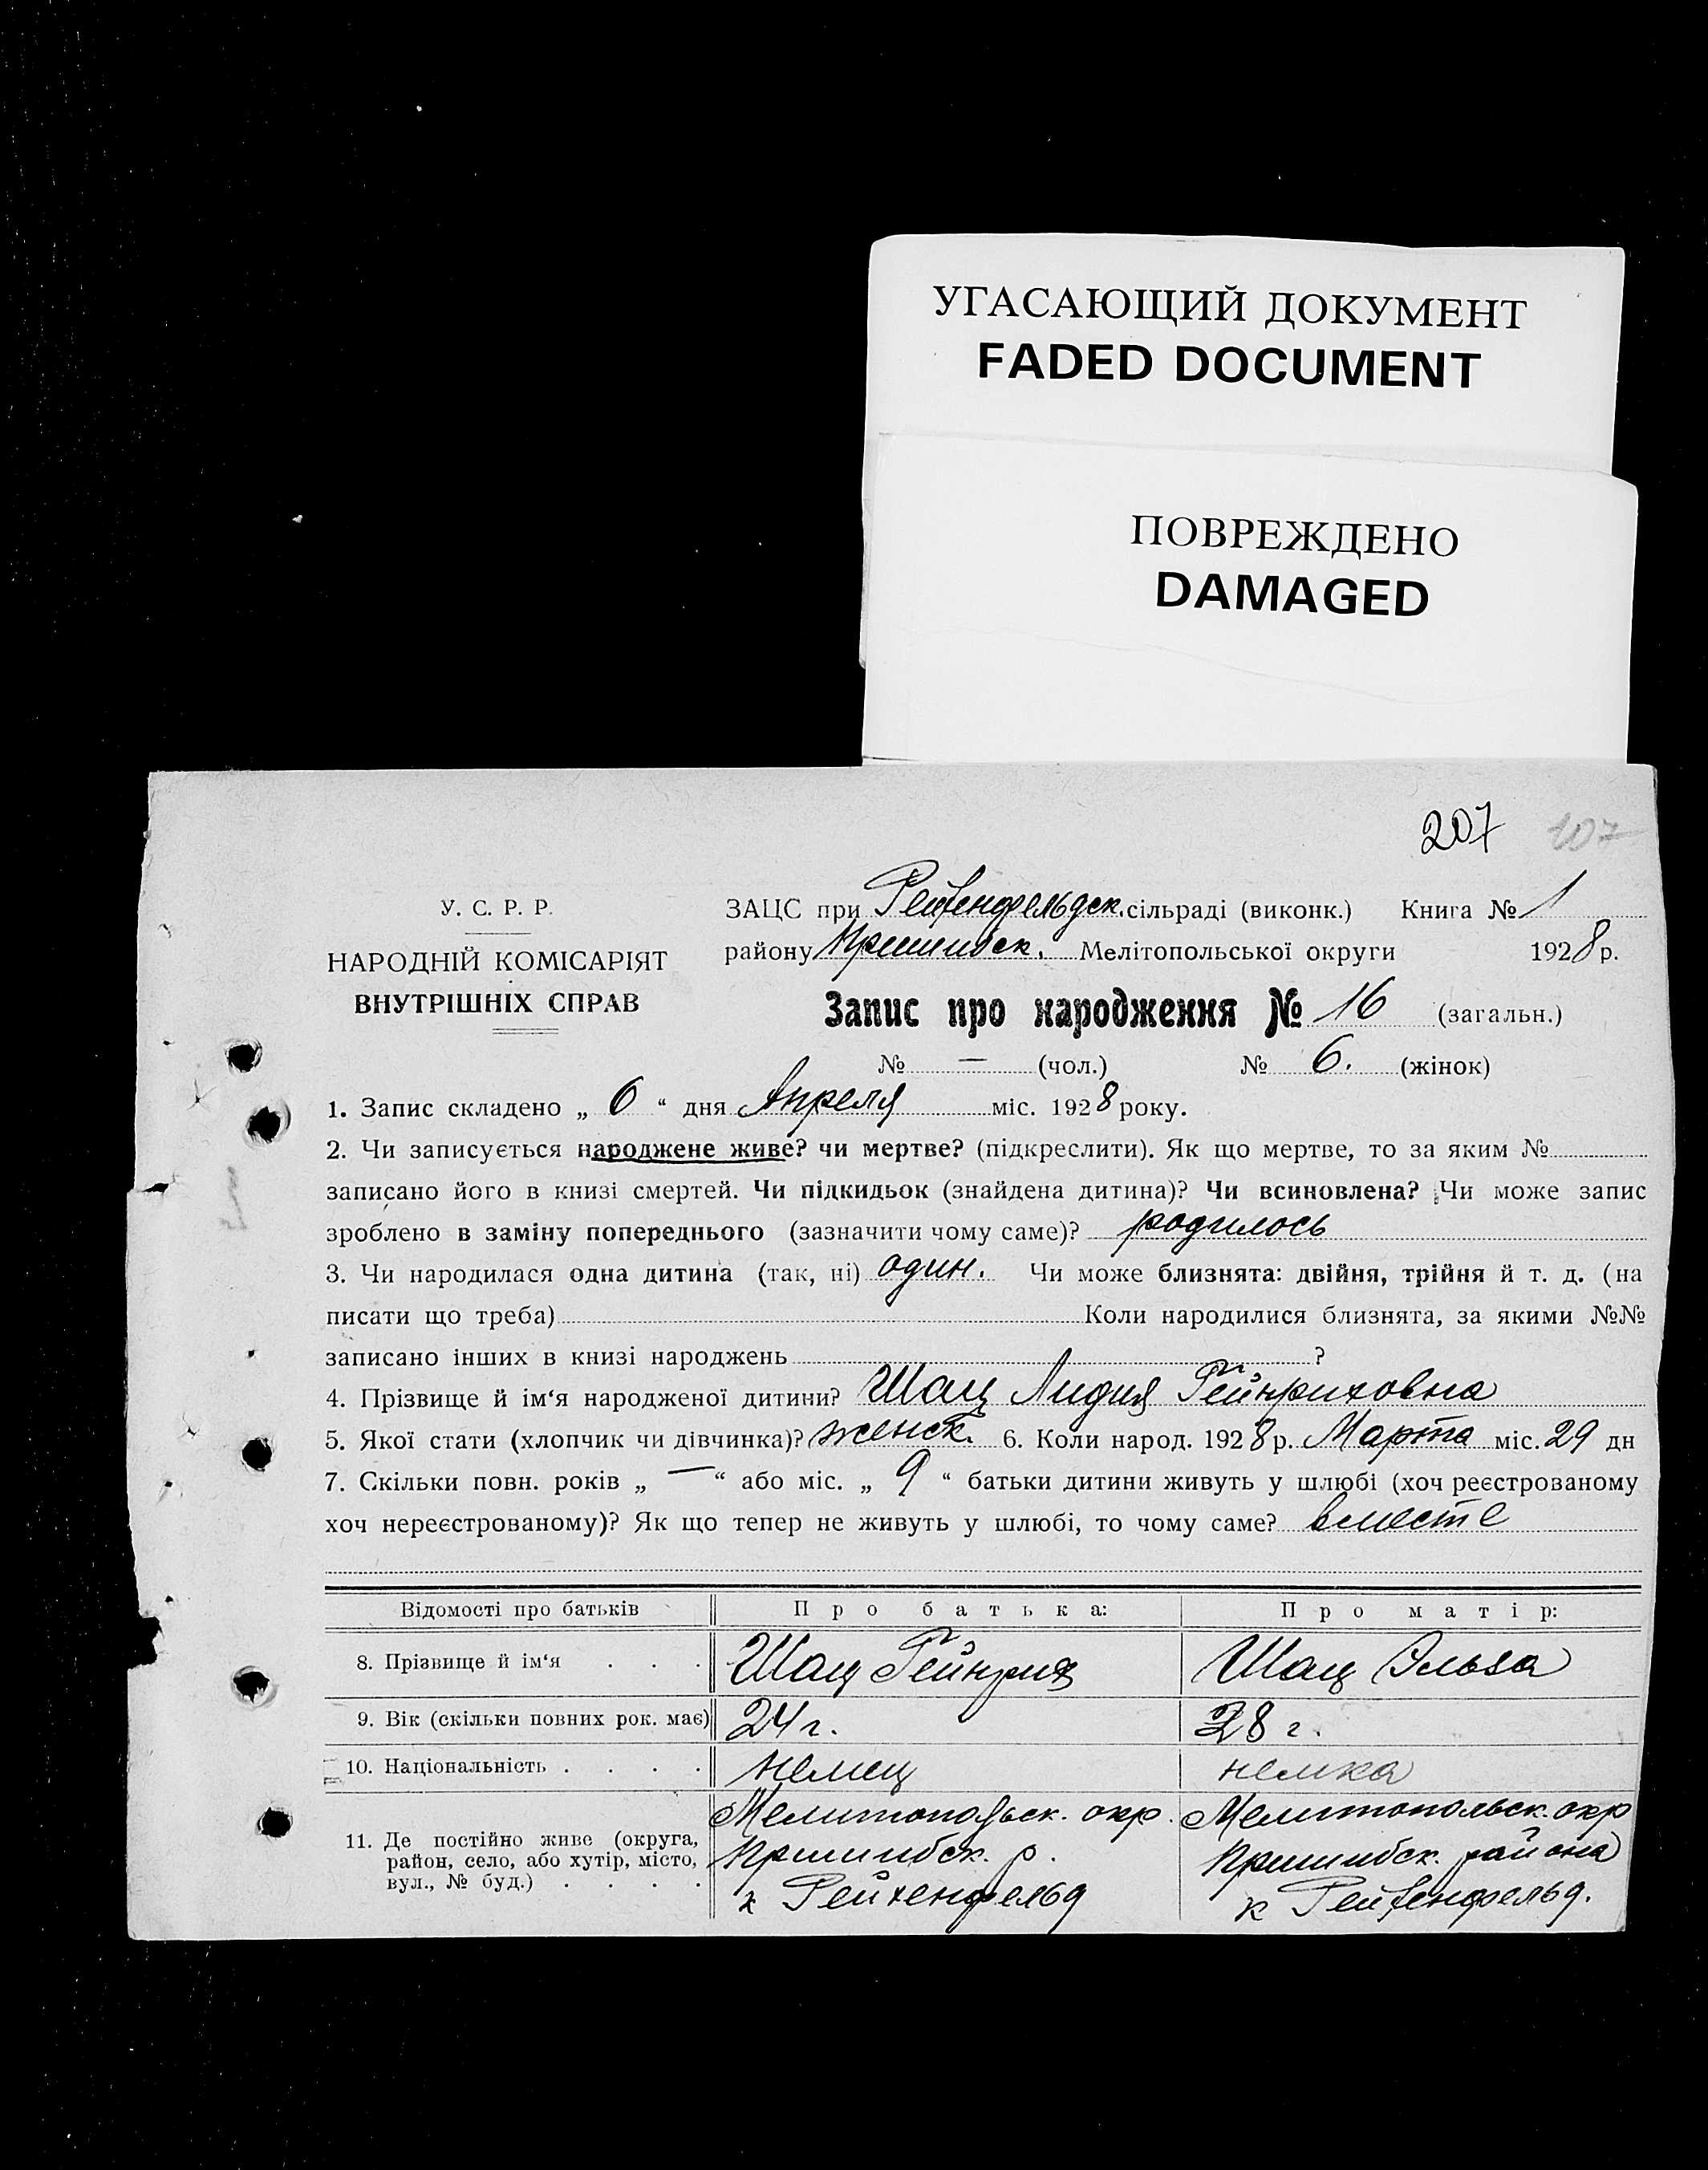 УГАСАЮЩИЙ ДОКУМЕНТ
FADED DOCUMENT
ПОВРЕЖДЕНО
DAMAGED
207 107
У. С. Р. Р.
НАРОДНІЙ КОМІСАРІЯТ
ВНУТРІШНІХ СПРАВ
ЗАЦС при Рейхенфельдск. сільраді (виконк.) Книга № 1
району Пришибск. Мелітопольської округи 1928 р.
Запис про народження № 16 (загальн.)
№ — (чол.) № 6. (жінок)
1. Запис складено „ 6 “ дня Апреля міс. 1928 року.
2. Чи записується народжене живе? чи мертве? (підкреслити). Як що мертве, то за яким №
записано його в книзі смертей. Чи підкидьок (знайдена дитина)? Чи всиновлена? Чи може запис
зроблено в заміну попереднього (зазначити чому саме)? родилось
3. Чи народилася одна дитина (так, ні) один. Чи може близнята: двійня, трійня й т. д. (на
писати що треба) Коли народилися близнята, за якими №№
записано інших в книзі народжень ?
4. Прізвище й ім‘я народженої дитини? Шац Лидия Гейнриховна
5. Якої стати (хлопчик чи дівчинка)? женск. 6. Коли народ. 1928 р. Марта міс. 29 дн
7. Скільки повн. років „ — “ або міс. „ 9 “ батьки дитини живуть у шлюбі (хоч реєстрованому
хоч нереєстрованому)? Як що тепер не живуть у шлюбі, то чому саме? вместе
Відомості про батьків Про батька: Про матір:
8. Прізвище й ім‘я . . . Шац Гейнрих Шац Эльза
9. Вік (скільки повних рок. має) 24 г. 28 г.
10. Національність . . . . немец немка
11. Де постійно живе (округа, район, село, або хутір, місто, вул., № буд.) . . . .
Мелитопольск. окр. Пришибск. р. к Рейхенфельд
Мелитопольск. окр Пришибск. района к Рейхенфельд.